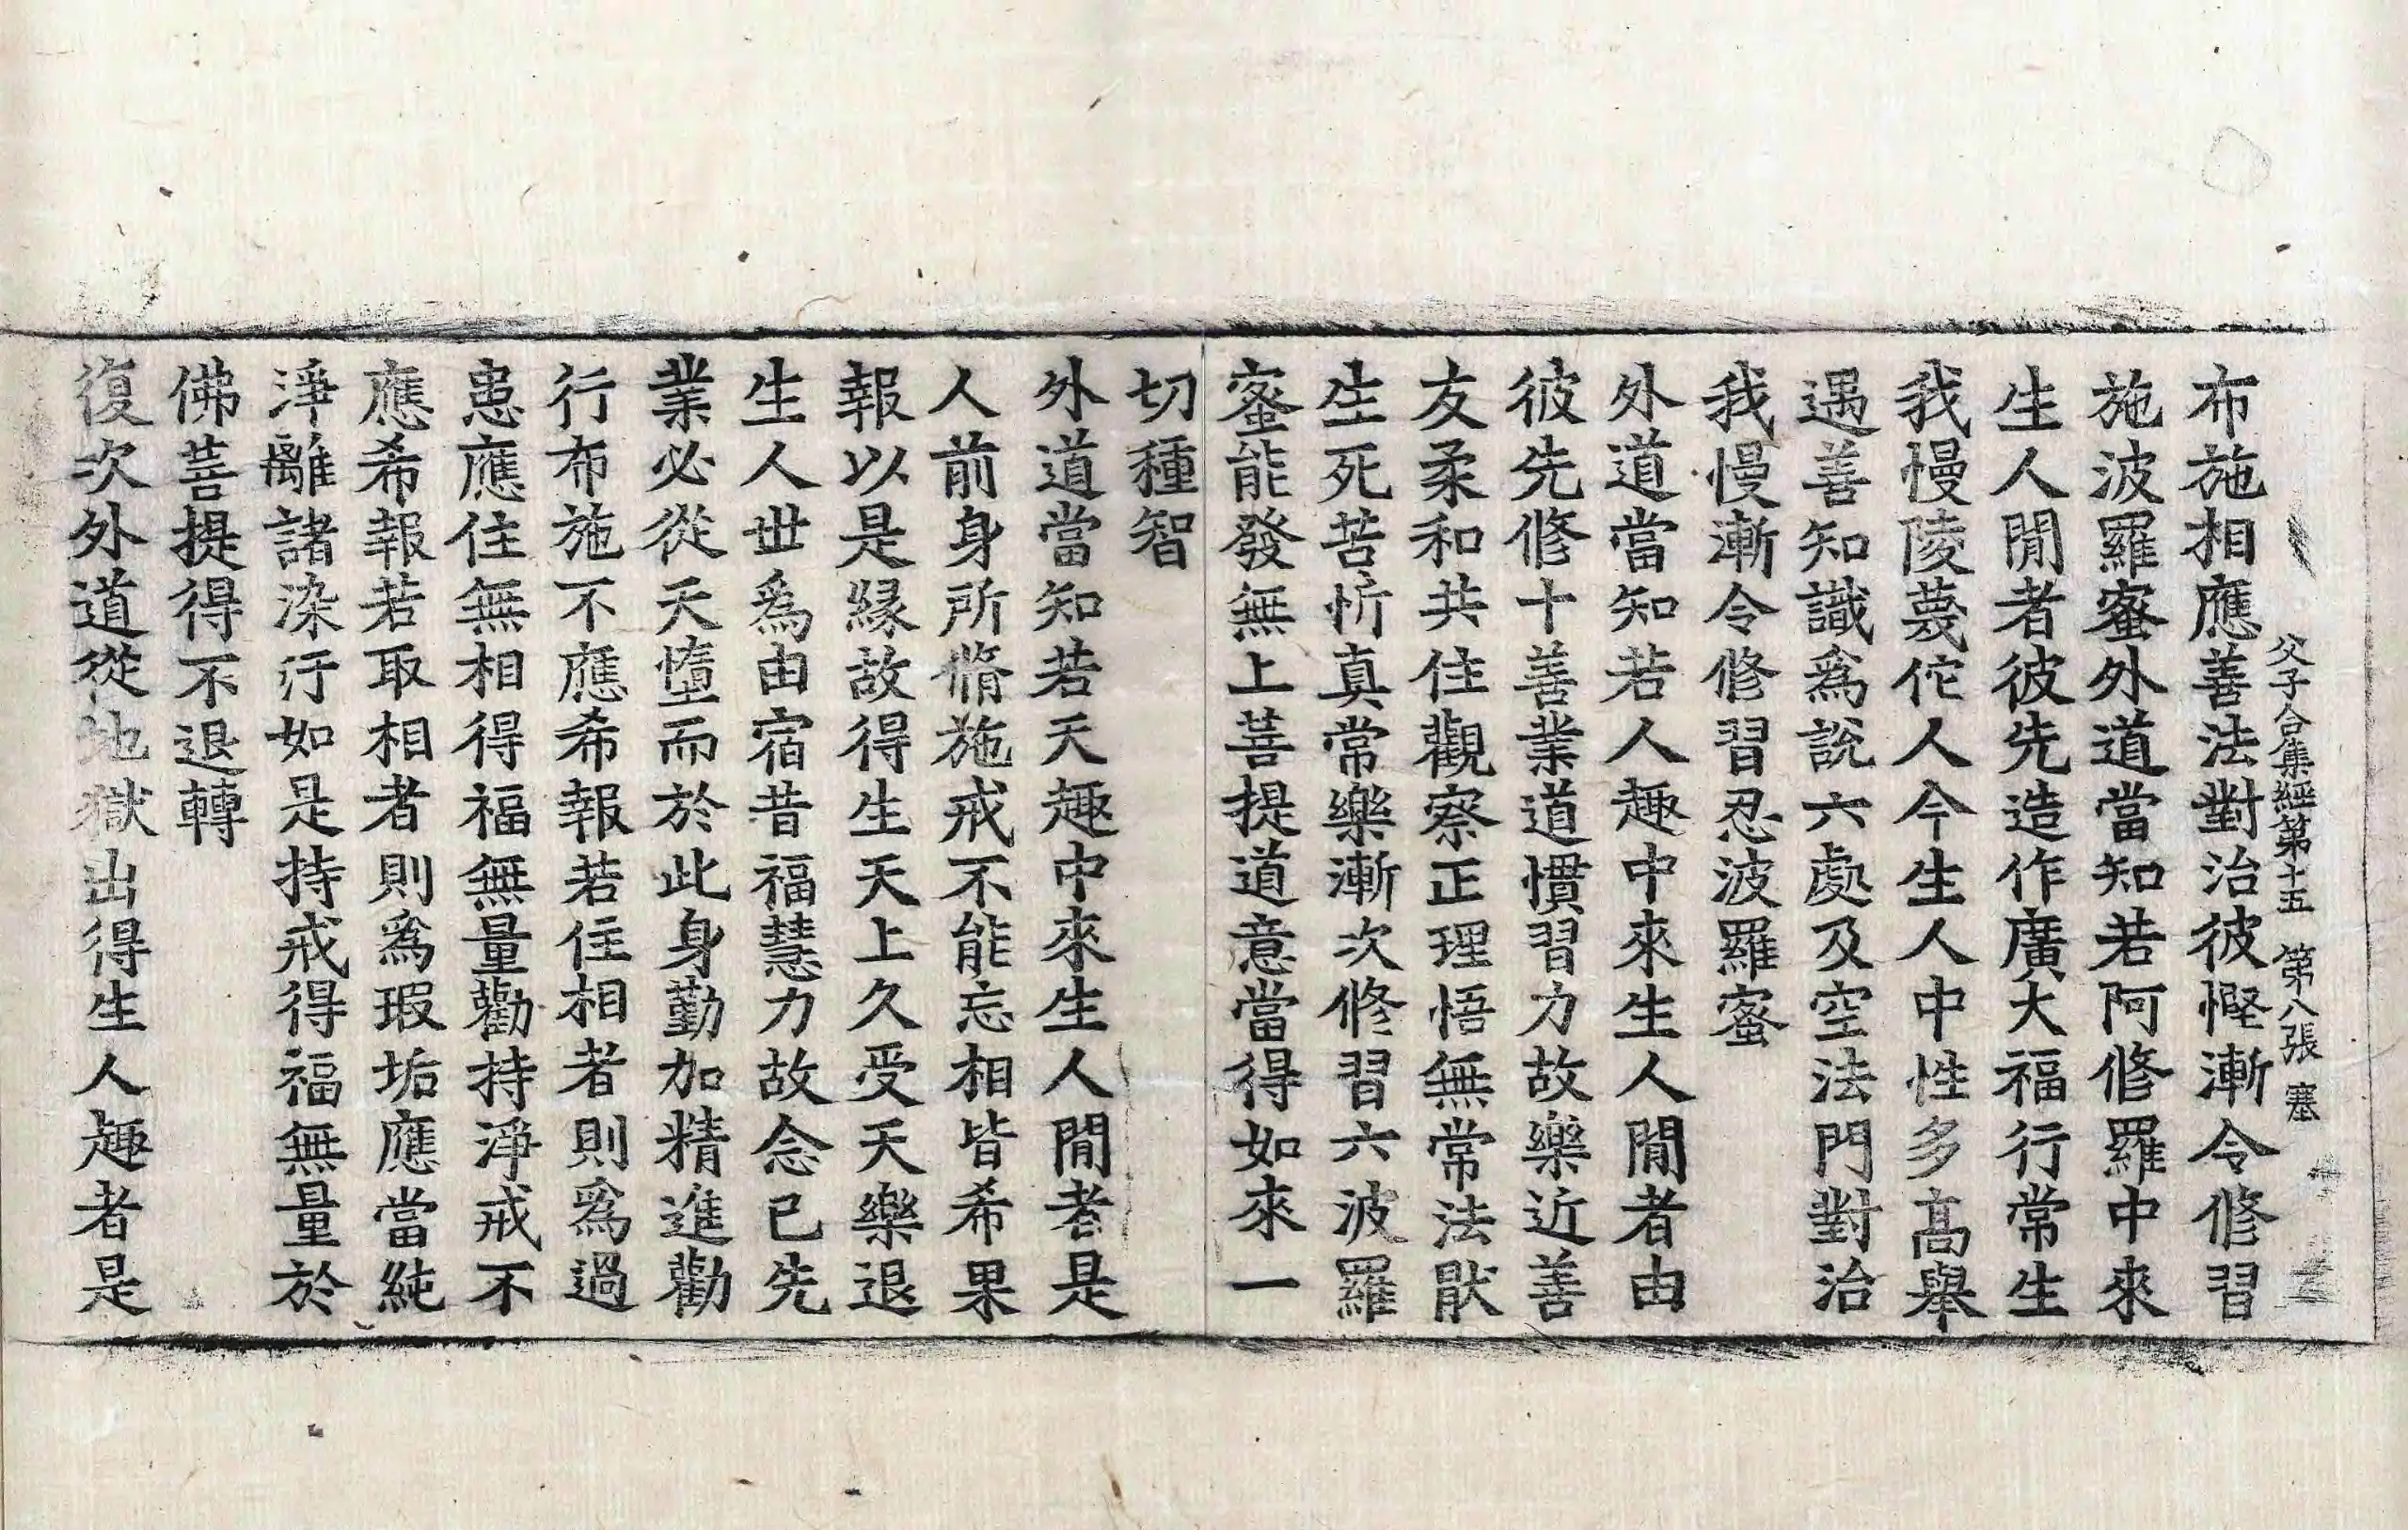 父子合集經第十五　第八張　塞
布施相應善法對治彼慳漸令修習
施波羅蜜外道當知若阿修羅中來
生人閒者彼先造作廣大福行常生
我慢陵蔑佗人今生人中性多髙舉
遇善知識爲說六處及空法門對治
我慢漸令修習忍波羅蜜
外道當知若人趣中來生人閒者由
彼先修十善業道慣習力故樂近善
友柔和共住觀察正理悟無常法猒
生死苦忻真常樂漸次修習六波羅
蜜能發無上菩提道意當得如來一
切種智
外道當知若天趣中來生人閒者是
人前身所脩施戒不能忘相皆希果
報以是緣故得生天上久受天樂退
生人世爲由宿昔福慧力故念已先
業必從天墮而於此身勤加精進勸
行布施不應希報若住相者則爲過
患應住無相得福無量勸持淨戒不
應希報若取相者則爲瑕垢應當純
淨離諸染汙如是持戒得福無量於
佛菩提得不退轉
復次外道從地獄出得生人趣者是